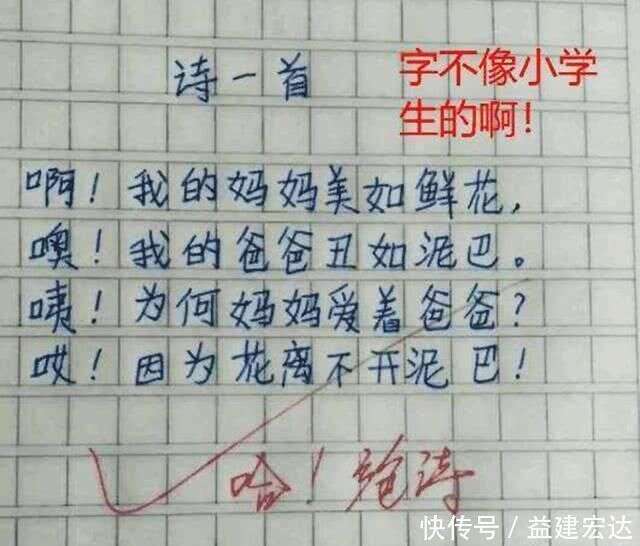 诗一首
字不像小学
生的啊！
啊！我的妈妈美如鲜花，
噢！我的爸爸丑如泥巴。
咦！为何妈妈爱着爸爸？
哎！因为花离不开泥巴！
哈！诗
快传号/益建宏达